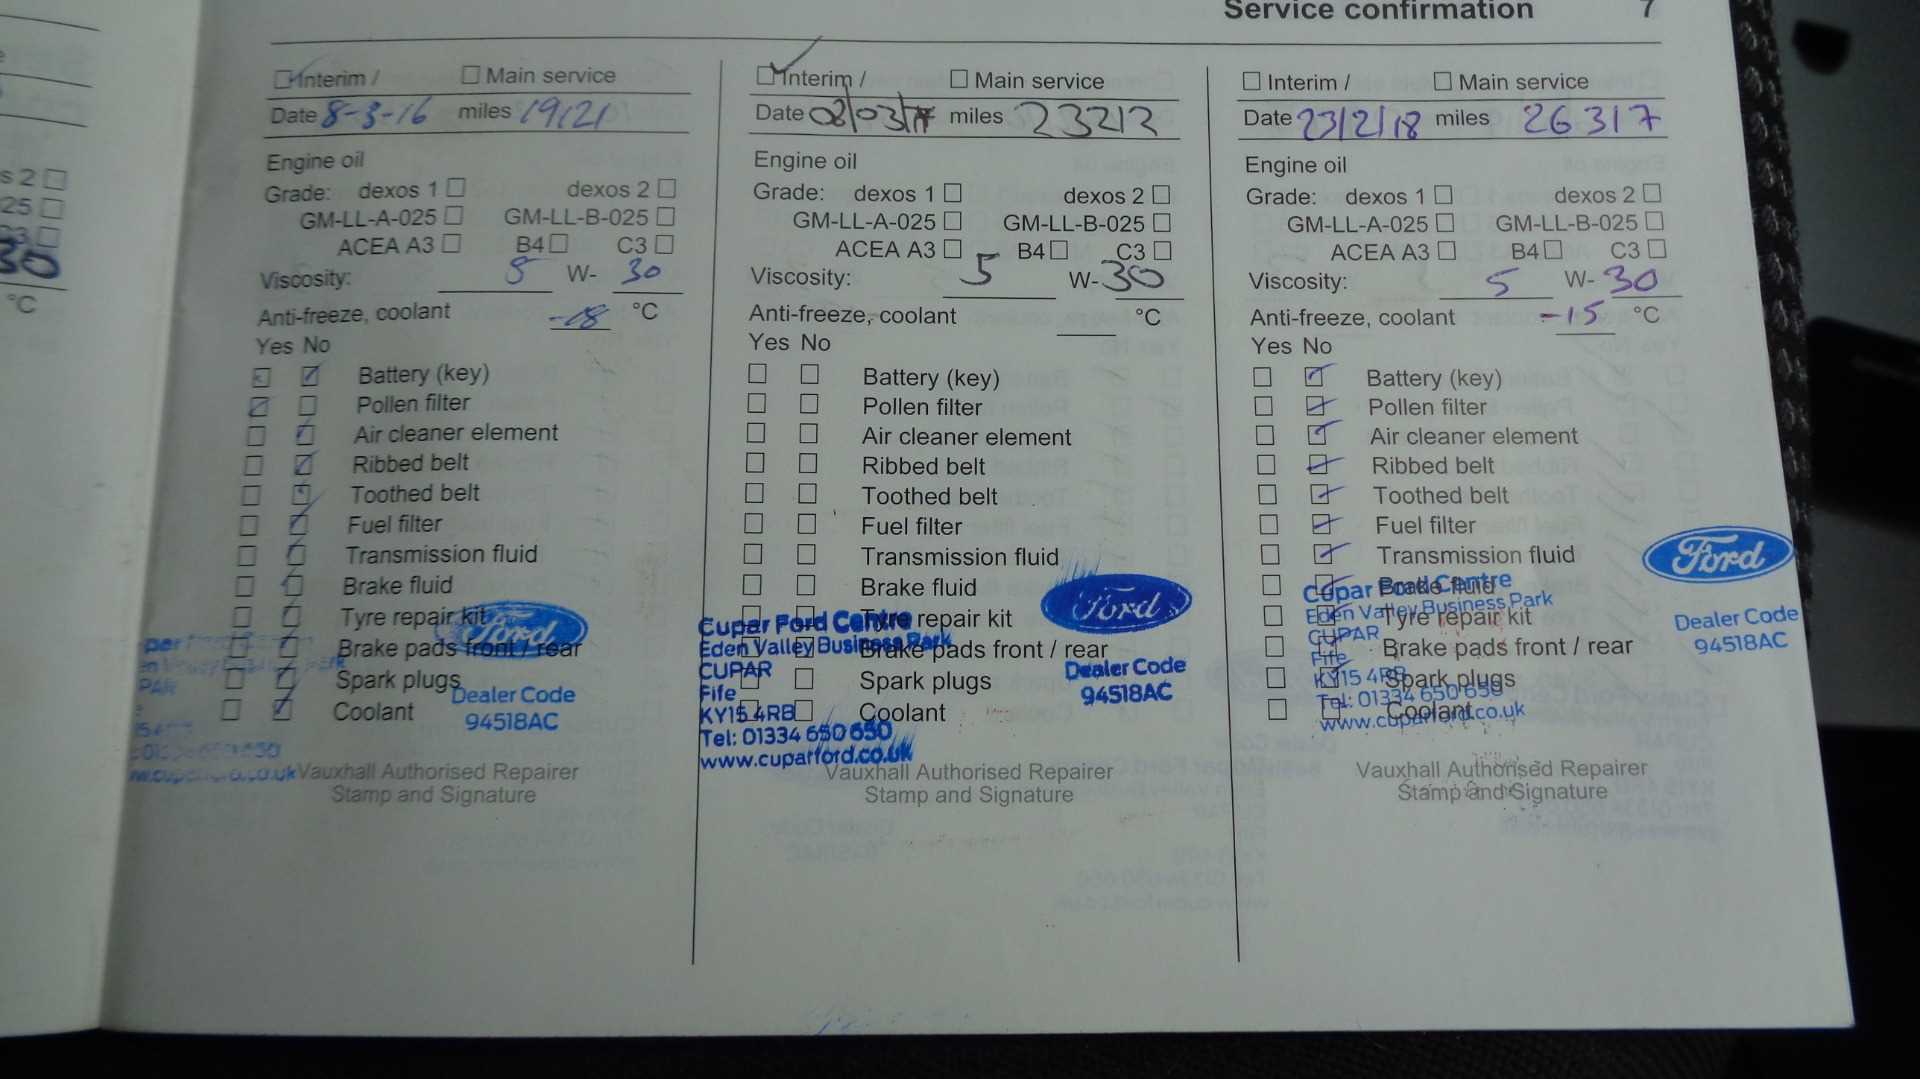 Service confirmation 7
Interim / Main service
Date 8-3-16 miles 19121
Engine oil
Grade: dexos 1 dexos 2
GM-LL-A-025 GM-LL-B-025
ACEA A3 B4 C3
Viscosity: 5 W- 30
Anti-freeze, coolant -18 °C
Yes No
Battery (key)
Pollen filter
Air cleaner element
Ribbed belt
Toothed belt
Fuel filter
Transmission fluid
Brake fluid
Tyre repair kit
Brake pads front / rear
Spark plugs
Coolant
Ford
Dealer Code
94518AC
Vauxhall Authorised Repairer
Stamp and Signature
Interim / Main service
Date 08/03/17 miles 23212
Engine oil
Grade: dexos 1 dexos 2
GM-LL-A-025 GM-LL-B-025
ACEA A3 B4 C3
Viscosity: 5 W- 30
Anti-freeze, coolant °C
Yes No
Battery (key)
Pollen filter
Air cleaner element
Ribbed belt
Toothed belt
Fuel filter
Transmission fluid
Brake fluid
Tyre repair kit
Brake pads front / rear
Spark plugs
Coolant
Ford
Dealer Code
94518AC
Cupar Ford Centre
Eden Valley Business Park
CUPAR
Fife
KY15 4RB
Tel: 01334 650 650
www.cuparford.co.uk
Vauxhall Authorised Repairer
Stamp and Signature
Interim / Main service
Date 23/2/18 miles 26317
Engine oil
Grade: dexos 1 dexos 2
GM-LL-A-025 GM-LL-B-025
ACEA A3 B4 C3
Viscosity: 5 W- 30
Anti-freeze, coolant -15 °C
Yes No
Battery (key)
Pollen filter
Air cleaner element
Ribbed belt
Toothed belt
Fuel filter
Transmission fluid
Brake fluid
Tyre repair kit
Brake pads front / rear
Spark plugs
Coolant
Ford
Dealer Code
94518AC
Cupar Ford Centre
Eden Valley Business Park
CUPAR
Fife
KY15 4RB
Tel: 01334 650 650
www.cuparford.co.uk
Vauxhall Authorised Repairer
Stamp and Signature